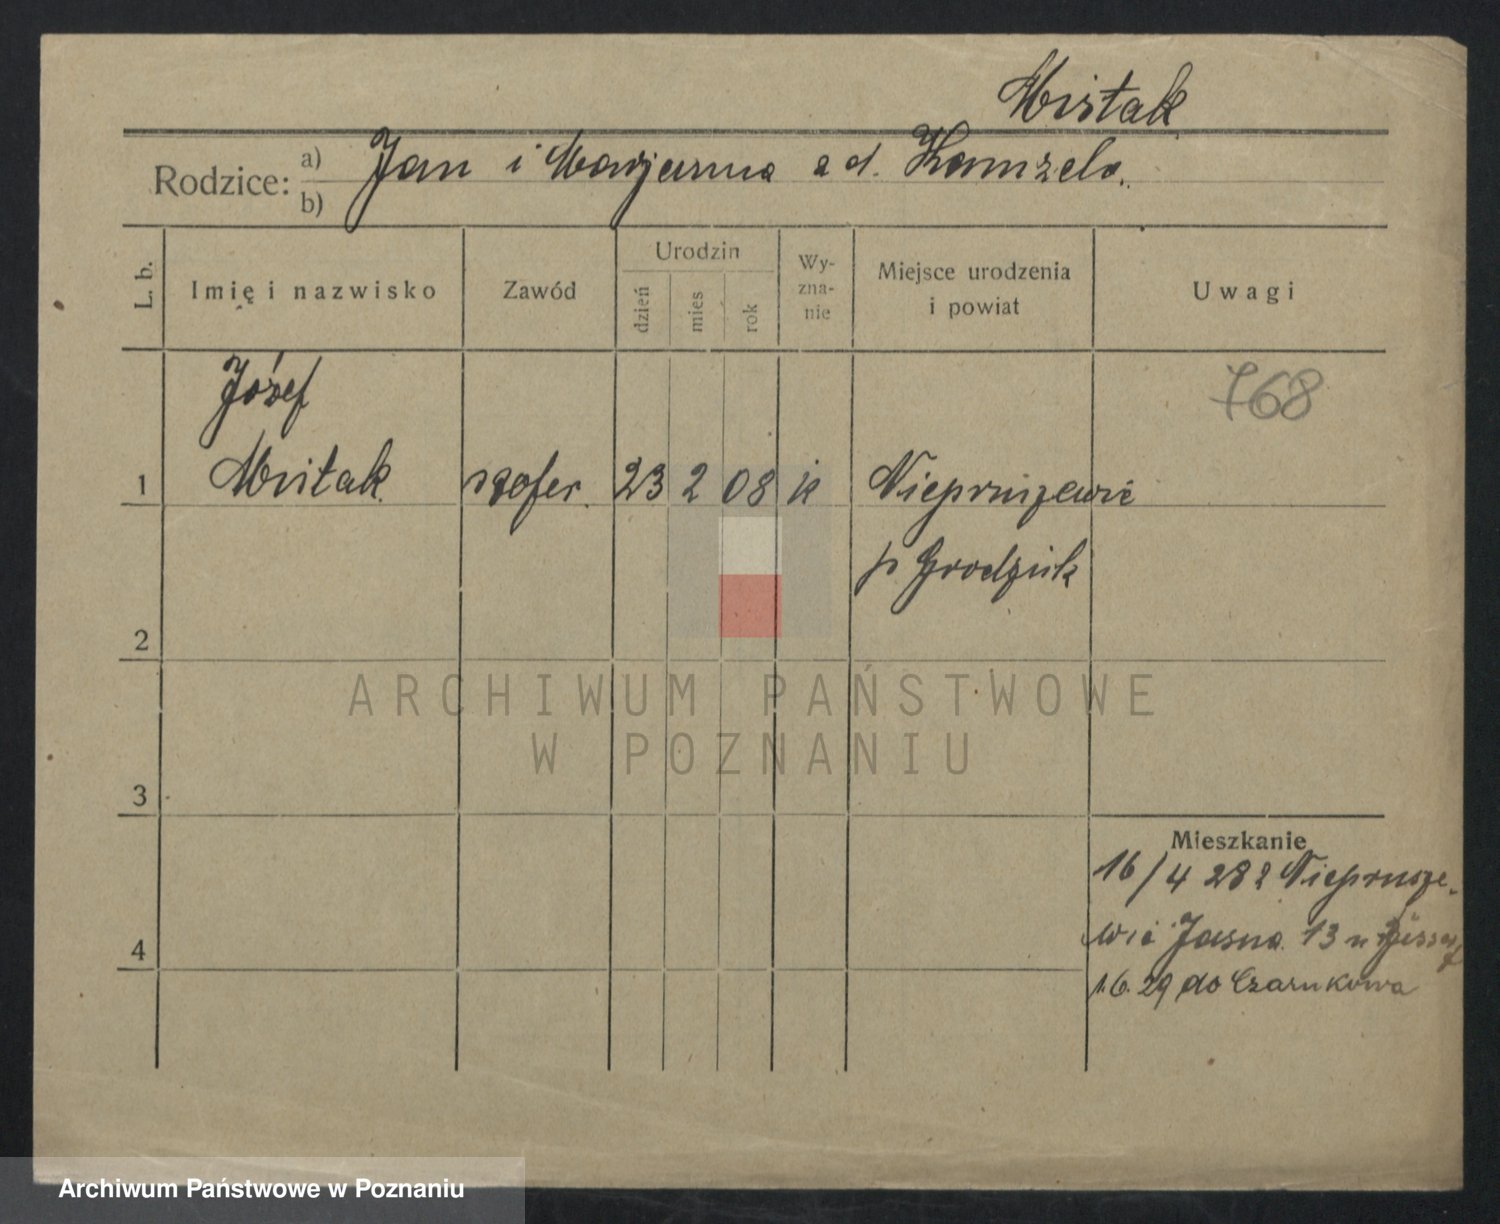 Mistak
Rodzice: a) Jan i Marjanna z d. Kamzela.
b)
L. b.
Imię i nazwisko
Zawód
Urodzin
dzień
mies
rok
Wy-
zna-
nie
Miejsce urodzenia
i powiat
Uwagi
Józef
768
1 Mistak szofer. 23 2 08 k Niepruszewie
p Grodzisk
2
ARCHIWUM PAŃSTWOWE
W POZNANIU
3
Mieszkanie
16/4 28 z Nieprusze-
wie Jasna 13 u
4
1.6.29 do Czarnkowa
Archiwum Państwowe w Poznaniu